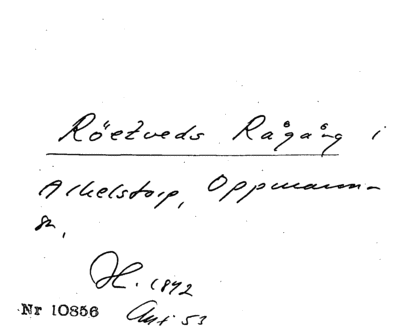 Röetveds Rågång i
Arkelstorp, Oppmanna
sn.
H. 1892
Nr 10856 Avt 53